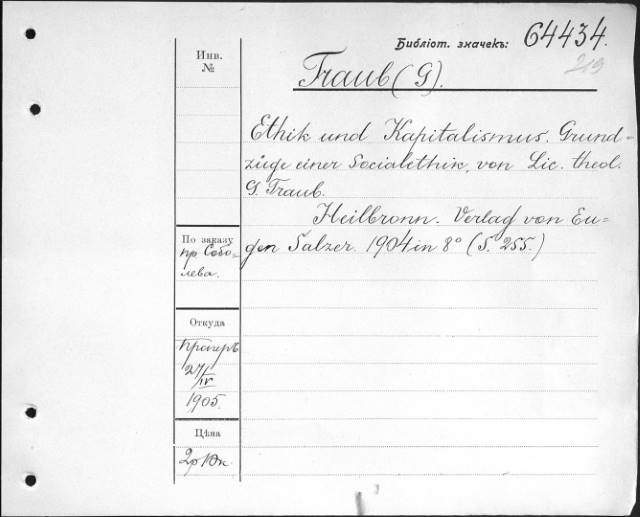 Библіот. значекъ: 64434.
219
Инв.
№
Traub (G).
Ethik und Kapitalismus. Grund=
züge einer Socialethik, von Lic. theol.
G. Traub.
Heilbronn. Verlag von Eu=
gen Salzer. 1904 in 8° (S. 255.)
По заказу
пр. Собо-
лева.
Откуда
Прагеръ
27/IV
1905.
Цѣна
2р 10к.